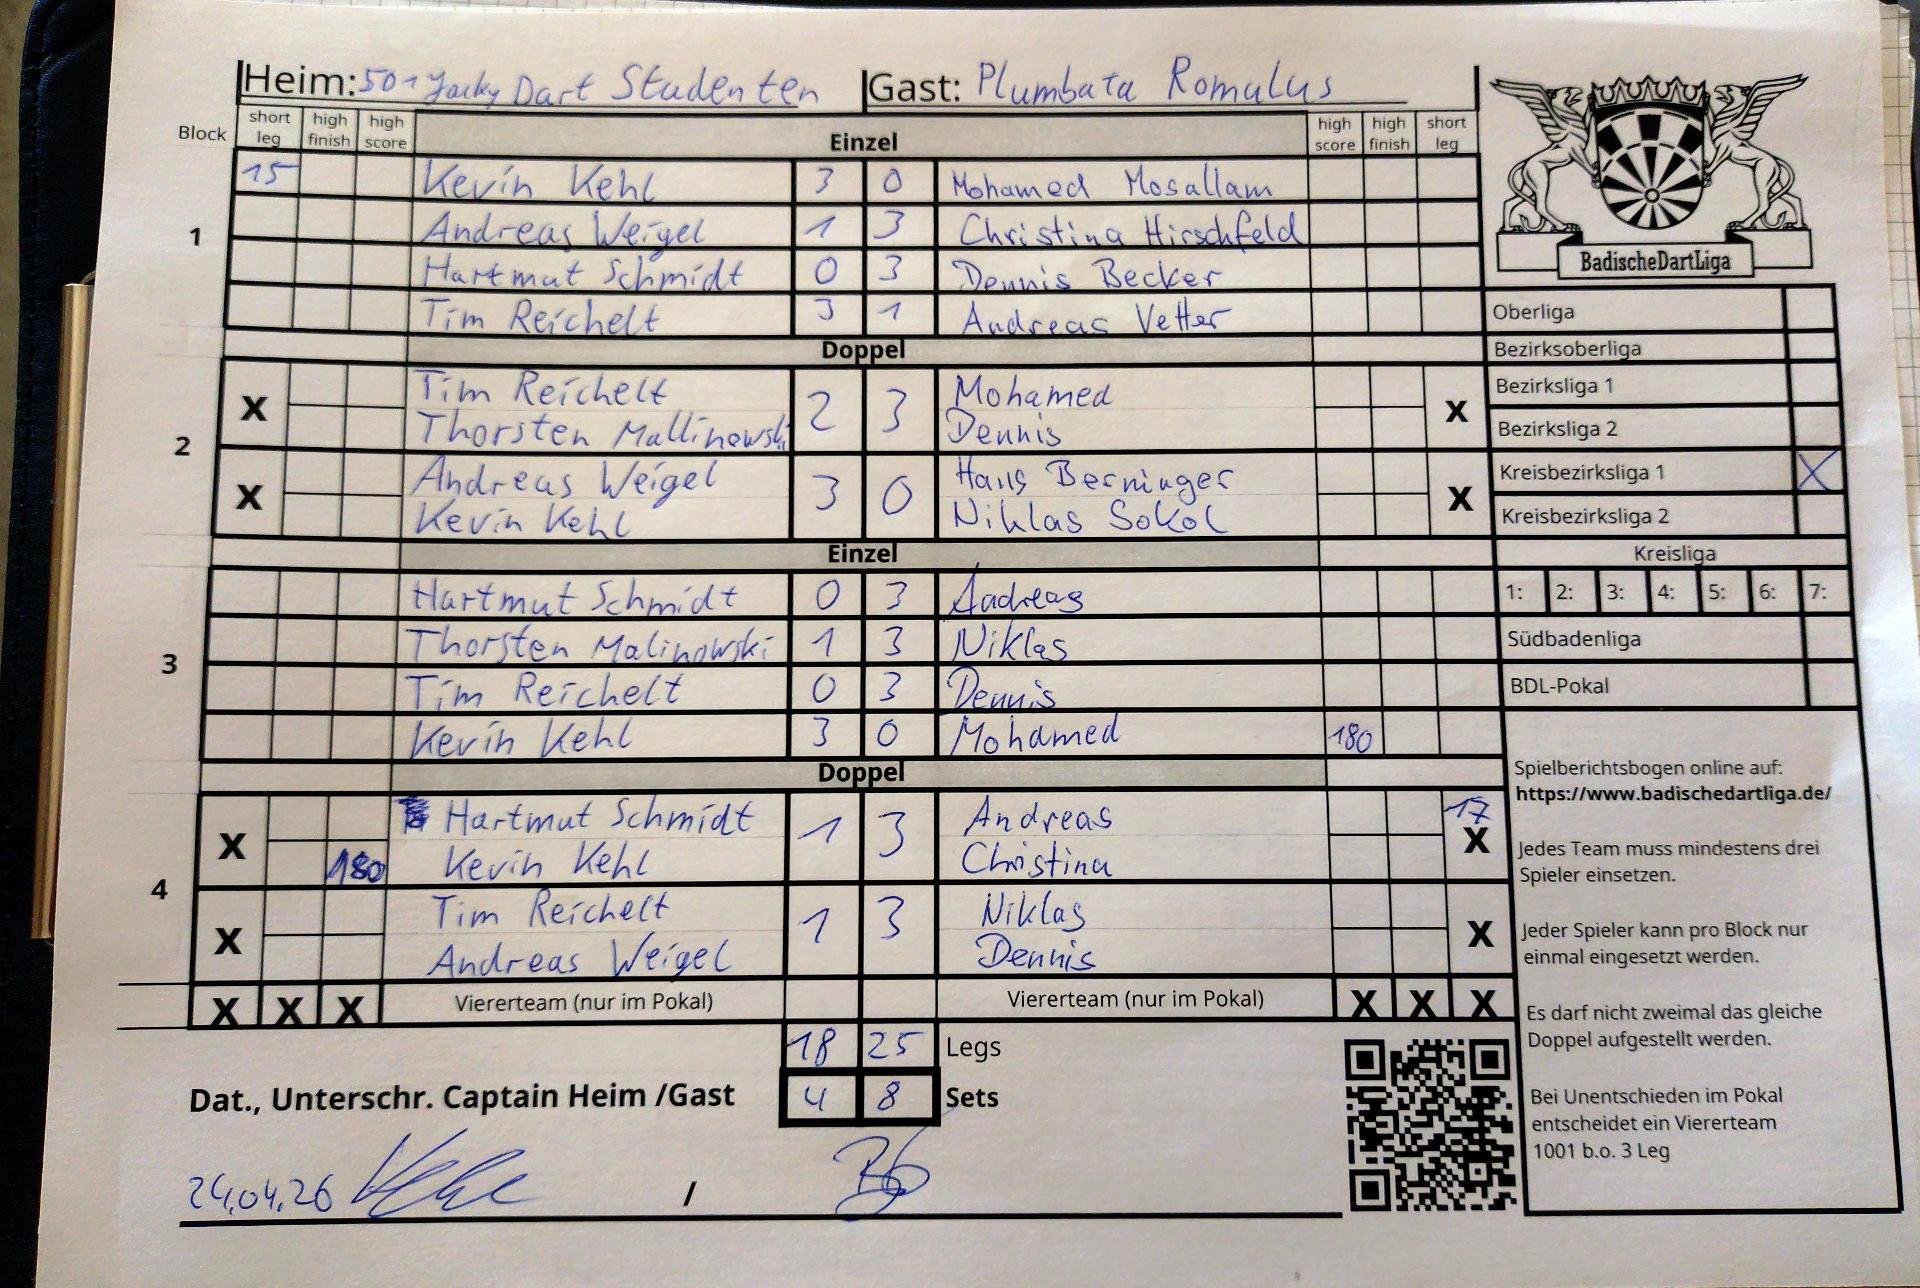 Heim: 501 Jacky Dart Studenten Gast: Plumbata Romulus
Block short leg high finish high score Einzel high score high finish short leg
1
15 Kevin Kehl 3 0 Mohamed Mosallam
Andreas Weigel 1 3 Christina Hirschfeld
Hartmut Schmidt 0 3 Dennis Becker
Tim Reichelt 3 1 Andreas Vetter
Doppel
2
X Tim Reichelt 2 3 Mohamed X
Thorsten Mallinowski Dennis
X Andreas Weigel 3 0 Hans Berninger X
Kevin Kehl Niklas Sokol
Einzel
3
Hartmut Schmidt 0 3 Andreas
Thorsten Malinowski 1 3 Niklas
Tim Reichelt 0 3 Dennis
Kevin Kehl 3 0 Mohamed 180
Doppel
4
X Hartmut Schmidt 1 3 Andreas 17 X
180 Kevin Kehl Christina
X Tim Reichelt 1 3 Niklas X
Andreas Weigel Dennis
X X X Viererteam (nur im Pokal) Viererteam (nur im Pokal) X X X
18 25 Legs
Dat., Unterschr. Captain Heim /Gast 4 8 Sets
24.04.26 /
BadischeDartLiga
Oberliga
Bezirksoberliga
Bezirksliga 1
Bezirksliga 2
Kreisbezirksliga 1 X
Kreisbezirksliga 2
Kreisliga
1: 2: 3: 4: 5: 6: 7:
Südbadenliga
BDL-Pokal
Spielberichtsbogen online auf:
https://www.badischedartliga.de/
Jedes Team muss mindestens drei
Spieler einsetzen.
Jeder Spieler kann pro Block nur
einmal eingesetzt werden.
Es darf nicht zweimal das gleiche
Doppel aufgestellt werden.
Bei Unentschieden im Pokal
entscheidet ein Viererteam
1001 b.o. 3 Leg